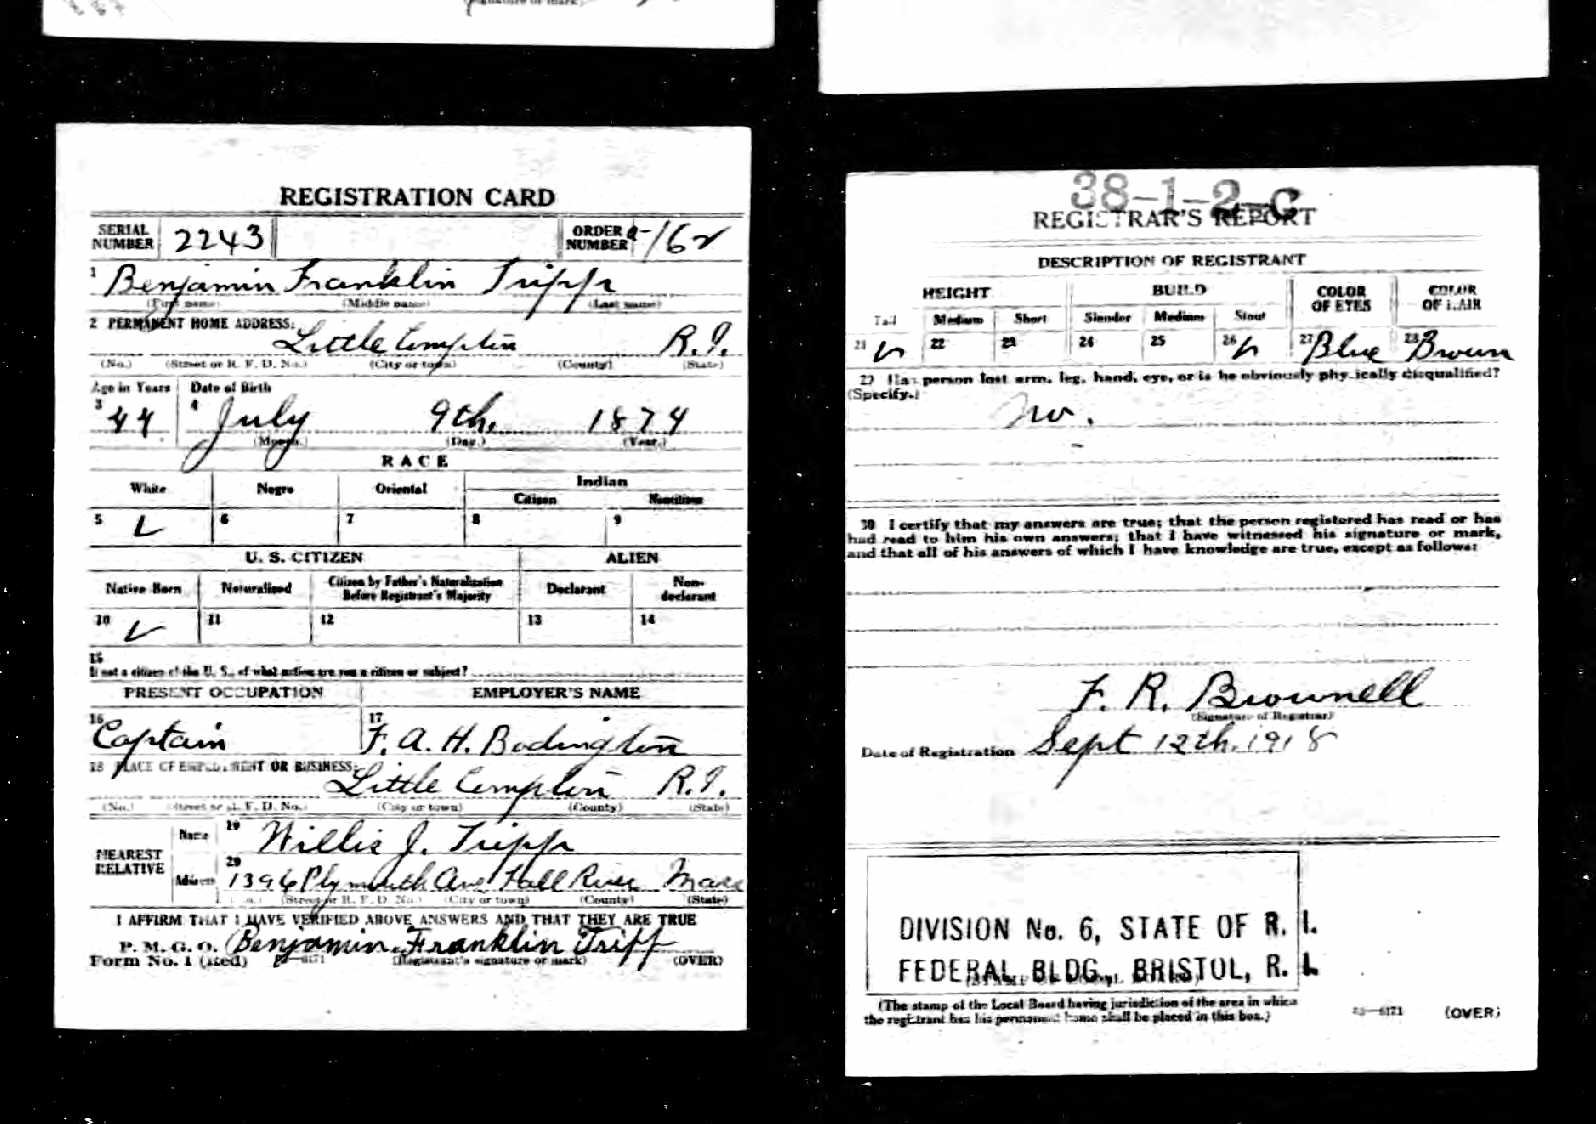 REGISTRATION CARD
SERIAL NUMBER 2243 ORDER NUMBER a-162
1 Benjamin Franklin Tripp
(First name) (Middle name) (Last name)
2 PERMANENT HOME ADDRESS:
Little Compton R.I.
(No.) (Street or R. F. D. No.) (City or town) (County) (State)
Age in Years Date of Birth
3 44 4 July 9th. 1874
(Month.) (Day.) (Year.)
RACE
White Negro Oriental Indian
Citizen Noncitizen
5 6 7 8 9
U. S. CITIZEN ALIEN
Native Born Naturalized Citizen by Father's Naturalization Before Registrant's Majority Declarant Non-declarant
10 11 12 13 14
15
If not a citizen of the U. S., of what nation are you a citizen or subject?
PRESENT OCCUPATION EMPLOYER'S NAME
16 Captain 17 F. A. H. Bodington
18 PLACE OF EMPLOYMENT OR BUSINESS:
Little Compton R.I.
(No.) (Street or R. F. D. No.) (City or town) (County) (State)
NEAREST RELATIVE
Name 19 Willis J. Tripp
Address 20 1396 Plymouth Ave Fall River Mass
(No.) (Street or R. F. D. No.) (City or town) (County) (State)
I AFFIRM THAT I HAVE VERIFIED ABOVE ANSWERS AND THAT THEY ARE TRUE
P. M. G. O. Benjamin Franklin Tripp
Form No. 1 (Red) (Registrant's signature or mark) (OVER)
38-1-2-C
REGISTRAR'S REPORT
DESCRIPTION OF REGISTRANT
HEIGHT BUILD COLOR OF EYES COLOR OF HAIR
Tall Medium Short Slender Medium Stout
21 22 23 24 25 26 27 Blue 28 Brown
29 Has person lost arm, leg, hand, eye, or is he obviously physically disqualified?
(Specify.)
No.
30 I certify that my answers are true; that the person registered has read or has
had read to him his own answers; that I have witnessed his signature or mark,
and that all of his answers of which I have knowledge are true, except as follows:
F. R. Brownell
(Signature of Registrar)
Date of Registration Sept 12th. 1918
DIVISION No. 6, STATE OF R. I.
FEDERAL BLDG., BRISTOL, R. I.
(The stamp of the Local Board having jurisdiction of the area in which
the registrant has his permanent home shall be placed in this box.)
03—6171 (OVER)